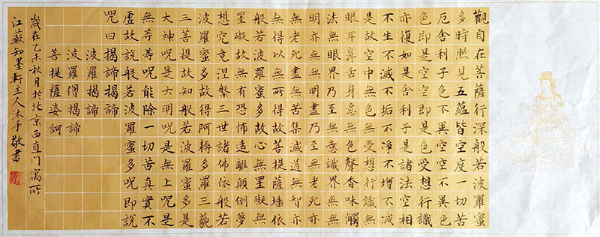 觀自在菩薩行深般若波羅蜜
多時照見五蘊皆空度一切苦
厄舍利子色不異空空不異色
色即是空空即是色受想行識
亦復如是舍利子是諸法空相
不生不滅不垢不淨不增不減
是故空中無色無受想行識無
眼耳鼻舌身意無色聲香味觸
法無眼界乃至無意識界無無
明亦無無明盡乃至無老死亦
無老死盡無苦集滅道無智亦
無得以無所得故菩提薩埵依
般若波羅蜜多故心無罣礙無
罣礙故無有恐怖遠離顛倒夢
想究竟涅槃三世諸佛依般若
波羅蜜多故得阿耨多羅三藐
三菩提故知般若波羅蜜多是
大神呪是大明呪是無上呪是
無等等呪能除一切苦真實不
虛故說般若波羅蜜多呪即說
呪曰揭諦揭諦
波羅揭諦
波羅僧揭諦
菩提薩婆訶
歲在乙未秋月於北京西直門寓所
江蘇知墨軒主人敬書